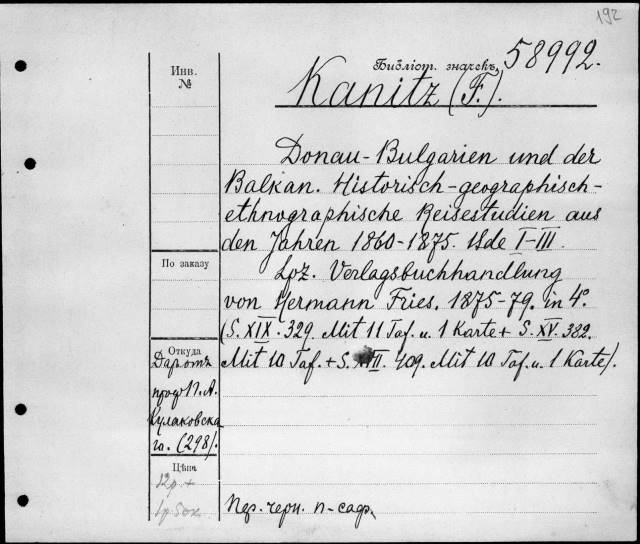 192
Инв.
№
Библіот. значекъ 58992.
Kanitz (F.).
Donau-Bulgarien und der
Balkan. Historisch-geographisch-
ethnographische Reisestudien aus
den Jahren 1860-1875. Bde I-III.
По заказу
Lpz. Verlagsbuchhandlung
von Hermann Fries. 1875-79. in 4°.
(S. XIX. 329. Mit 11 Taf. u. 1 Karte + S. XV. 382.
Откуда
Mit 10 Taf. + S. 409. Mit 10 Taf. u. 1 Karte).
Даръ отъ
проф. П. А.
Кулаковска
го. (298).
Цѣна
12р +
1р 50к.
Пер. черн. п-саф.